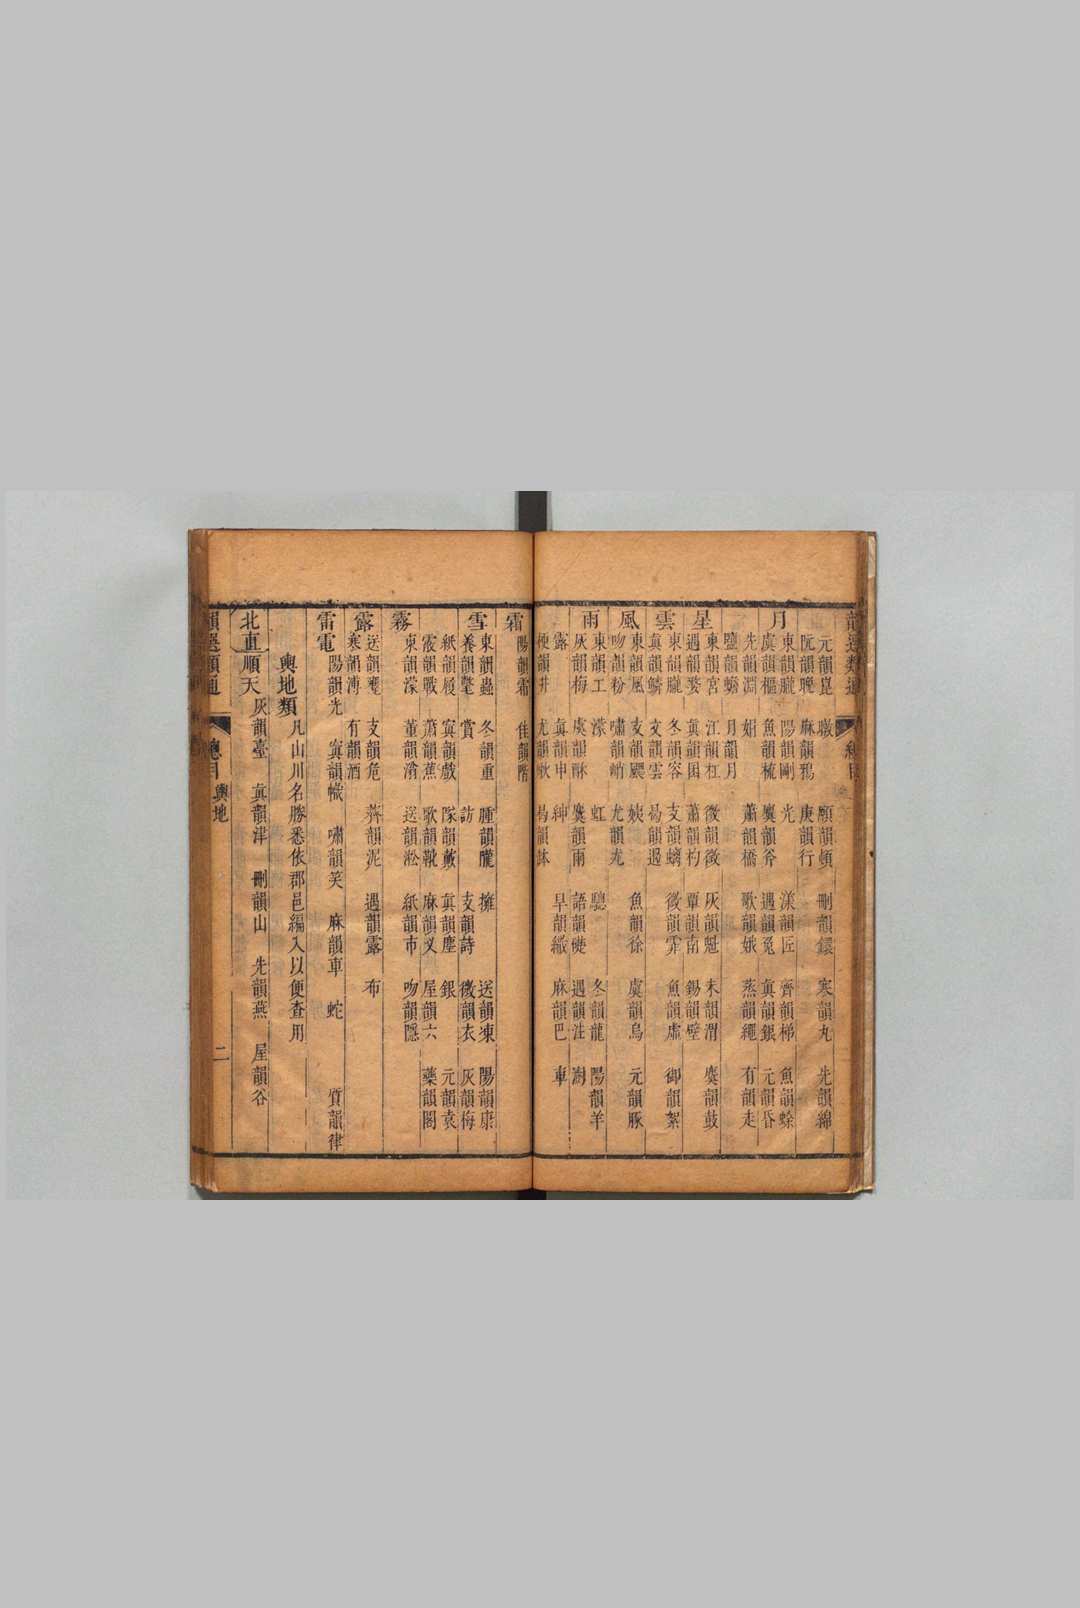 元韻崑　暾　願韻頓　刪韻鐶　寒韻丸　先韻綿
阮韻晚　麻韻鴉　庚韻行
月
東韻朧　陽韻剛　光　漾韻匠　齊韻梯　魚韻蜍
虞韻樞　魚韻梳　麌韻斧　遇韻兔　真韻銀　元韻昏
先韻淵　娟　蕭韻橋　歌韻娥　蒸韻繩　有韻走
鹽韻蟾　月韻月
星
東韻宮　江韻杠　微韻微　灰韻魁　未韻渭　麌韻鼓
遇韻婺　真韻囷　蕭韻杓　覃韻南　錫韻壁
雲
東韻朧　冬韻容　支韻螭　微韻霏　魚韻虛　御韻絮
真韻鱗　文韻雲　曷韻遏
風
東韻風　支韻颸　姨　魚韻徐　虞韻烏　元韻豚
吻韻粉　嘯韻峭　尤韻尤
雨
東韻工　濛　虹　驄　冬韻龍　陽韻羊
灰韻梅　虞韻酥　麌韻雨　語韻礎　遇韻注　澍
露　真韻申　紳　旱韻繖　麻韻巴　車
梗韻井　尤韻
霜
陽韻霜　佳韻階
雪
東韻蟲　冬韻重　腫韻朧　擁　送韻凍　陽韻康
養韻氅　賞　訪　支韻詩　微韻衣　灰韻梅
紙韻履　寘韻戲　隊韻　真韻塵　銀　元韻袁
霰韻戰　蕭韻蕉　歌韻靴　麻韻叉　屋韻六　藥韻閣
霧
東韻濛　董韻滃　送韻淞　紙韻市　吻韻隱
露
送韻甕　支韻危　薺韻泥　遇韻露　布
寒韻漙　有韻酒
雷電
陽韻光　寘韻幟　嘯韻笑　麻韻車　蛇　質韻律
輿地類　凡山川名勝悉依郡邑編入以便查用
北直順天
灰韻臺　真韻津　刪韻山　先韻燕　屋韻谷
韻選類通　總目　輿地　二